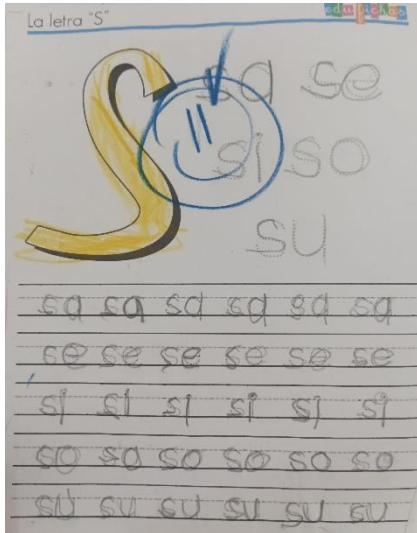 La letra "S"
edupickas
S
sa se
si so
su
sa sa sa sa sa sa
se se se se se se
si si si si si si
so so so so so so
su su su su su su